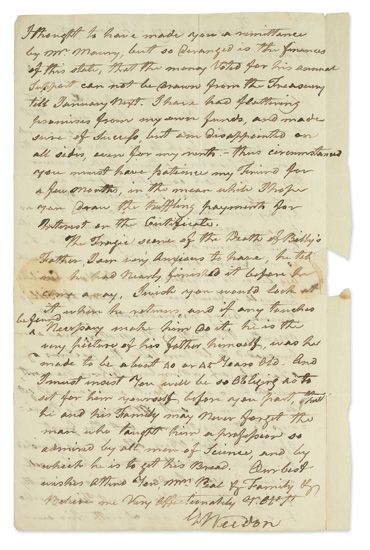 I thought to have made you a remittance
by Mr Maury, but so deranged is the finances
of this state, that the money Voted for his annual
Support can not be drawn from the Treasury
till January Next. I have had flattering
promises from my own funds, and made
sure of Success, but am disappointed on
all sides, even for my rents. thus circumstanced
you must have patience my friend for
a few months, in the mean while I hope
you draw the payments for
Interest on the Certificate.
The Tragic scene of the Death of Bobby's
Father I am very Anxious to have, he tel
me he had Nearly finished it before he
came away, I wish you would look at
it when he returns, and if any touches
be found Necessary make him do it, he is the
very picture of his father himself, was he
made to be about 40 or 45 Years Old. And
I must insist You will be so Obliging as to
sit for him yourself before you part, that
he and his Family may Never forget the
man who taught him a profession so
admired by all men of Science, and by
which he is to get his Bread. Our best
wishes Attend You Mrs Peal & Family &
Believe me Very Affectionately Yr
G Weedon